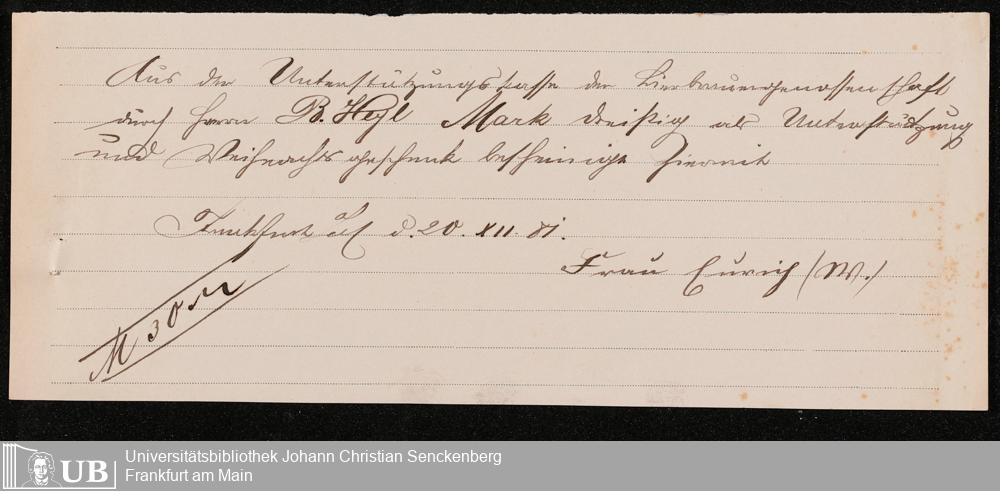 Aus der Unterstützungskasse der Bierbrauergenossenschaft
durch Herrn B. Heyl Mark dreißig als Unterstützung
und Weihnachtsgeschenk bescheinigt hiermit
Frankfurt a/ d. 20. XII. 81.
Frau Eurich (W.)
M 30
UB
Universitätsbibliothek Johann Christian Senckenberg
Frankfurt am Main